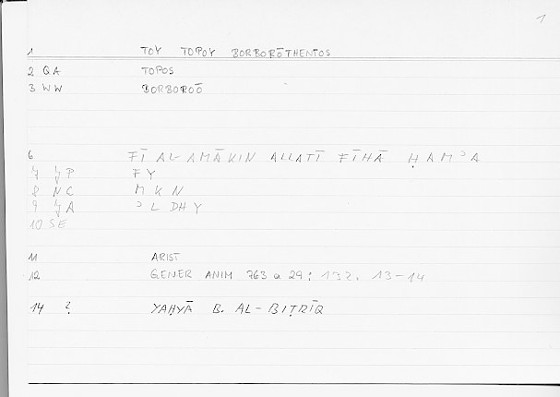 1
1 TOY TOPOY BORBORŌTHENTOS
2 QA TOPOS
3 WW BORBOROŌ
6 FĪ AL-AMĀKIN ALLATĪ FĪHĀ ḤAMʾA
7 YP FY
8 NC MKN
9 YA ʾLDHY
10 SE
11 ARIST
12 GENER ANIM 763 a 29: 132. 13-14
14 ? YAḤYĀ B. AL-BIṬRĪQ